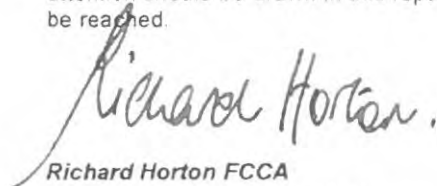 be reached.
Richard Horton.
Richard Horton FCCA